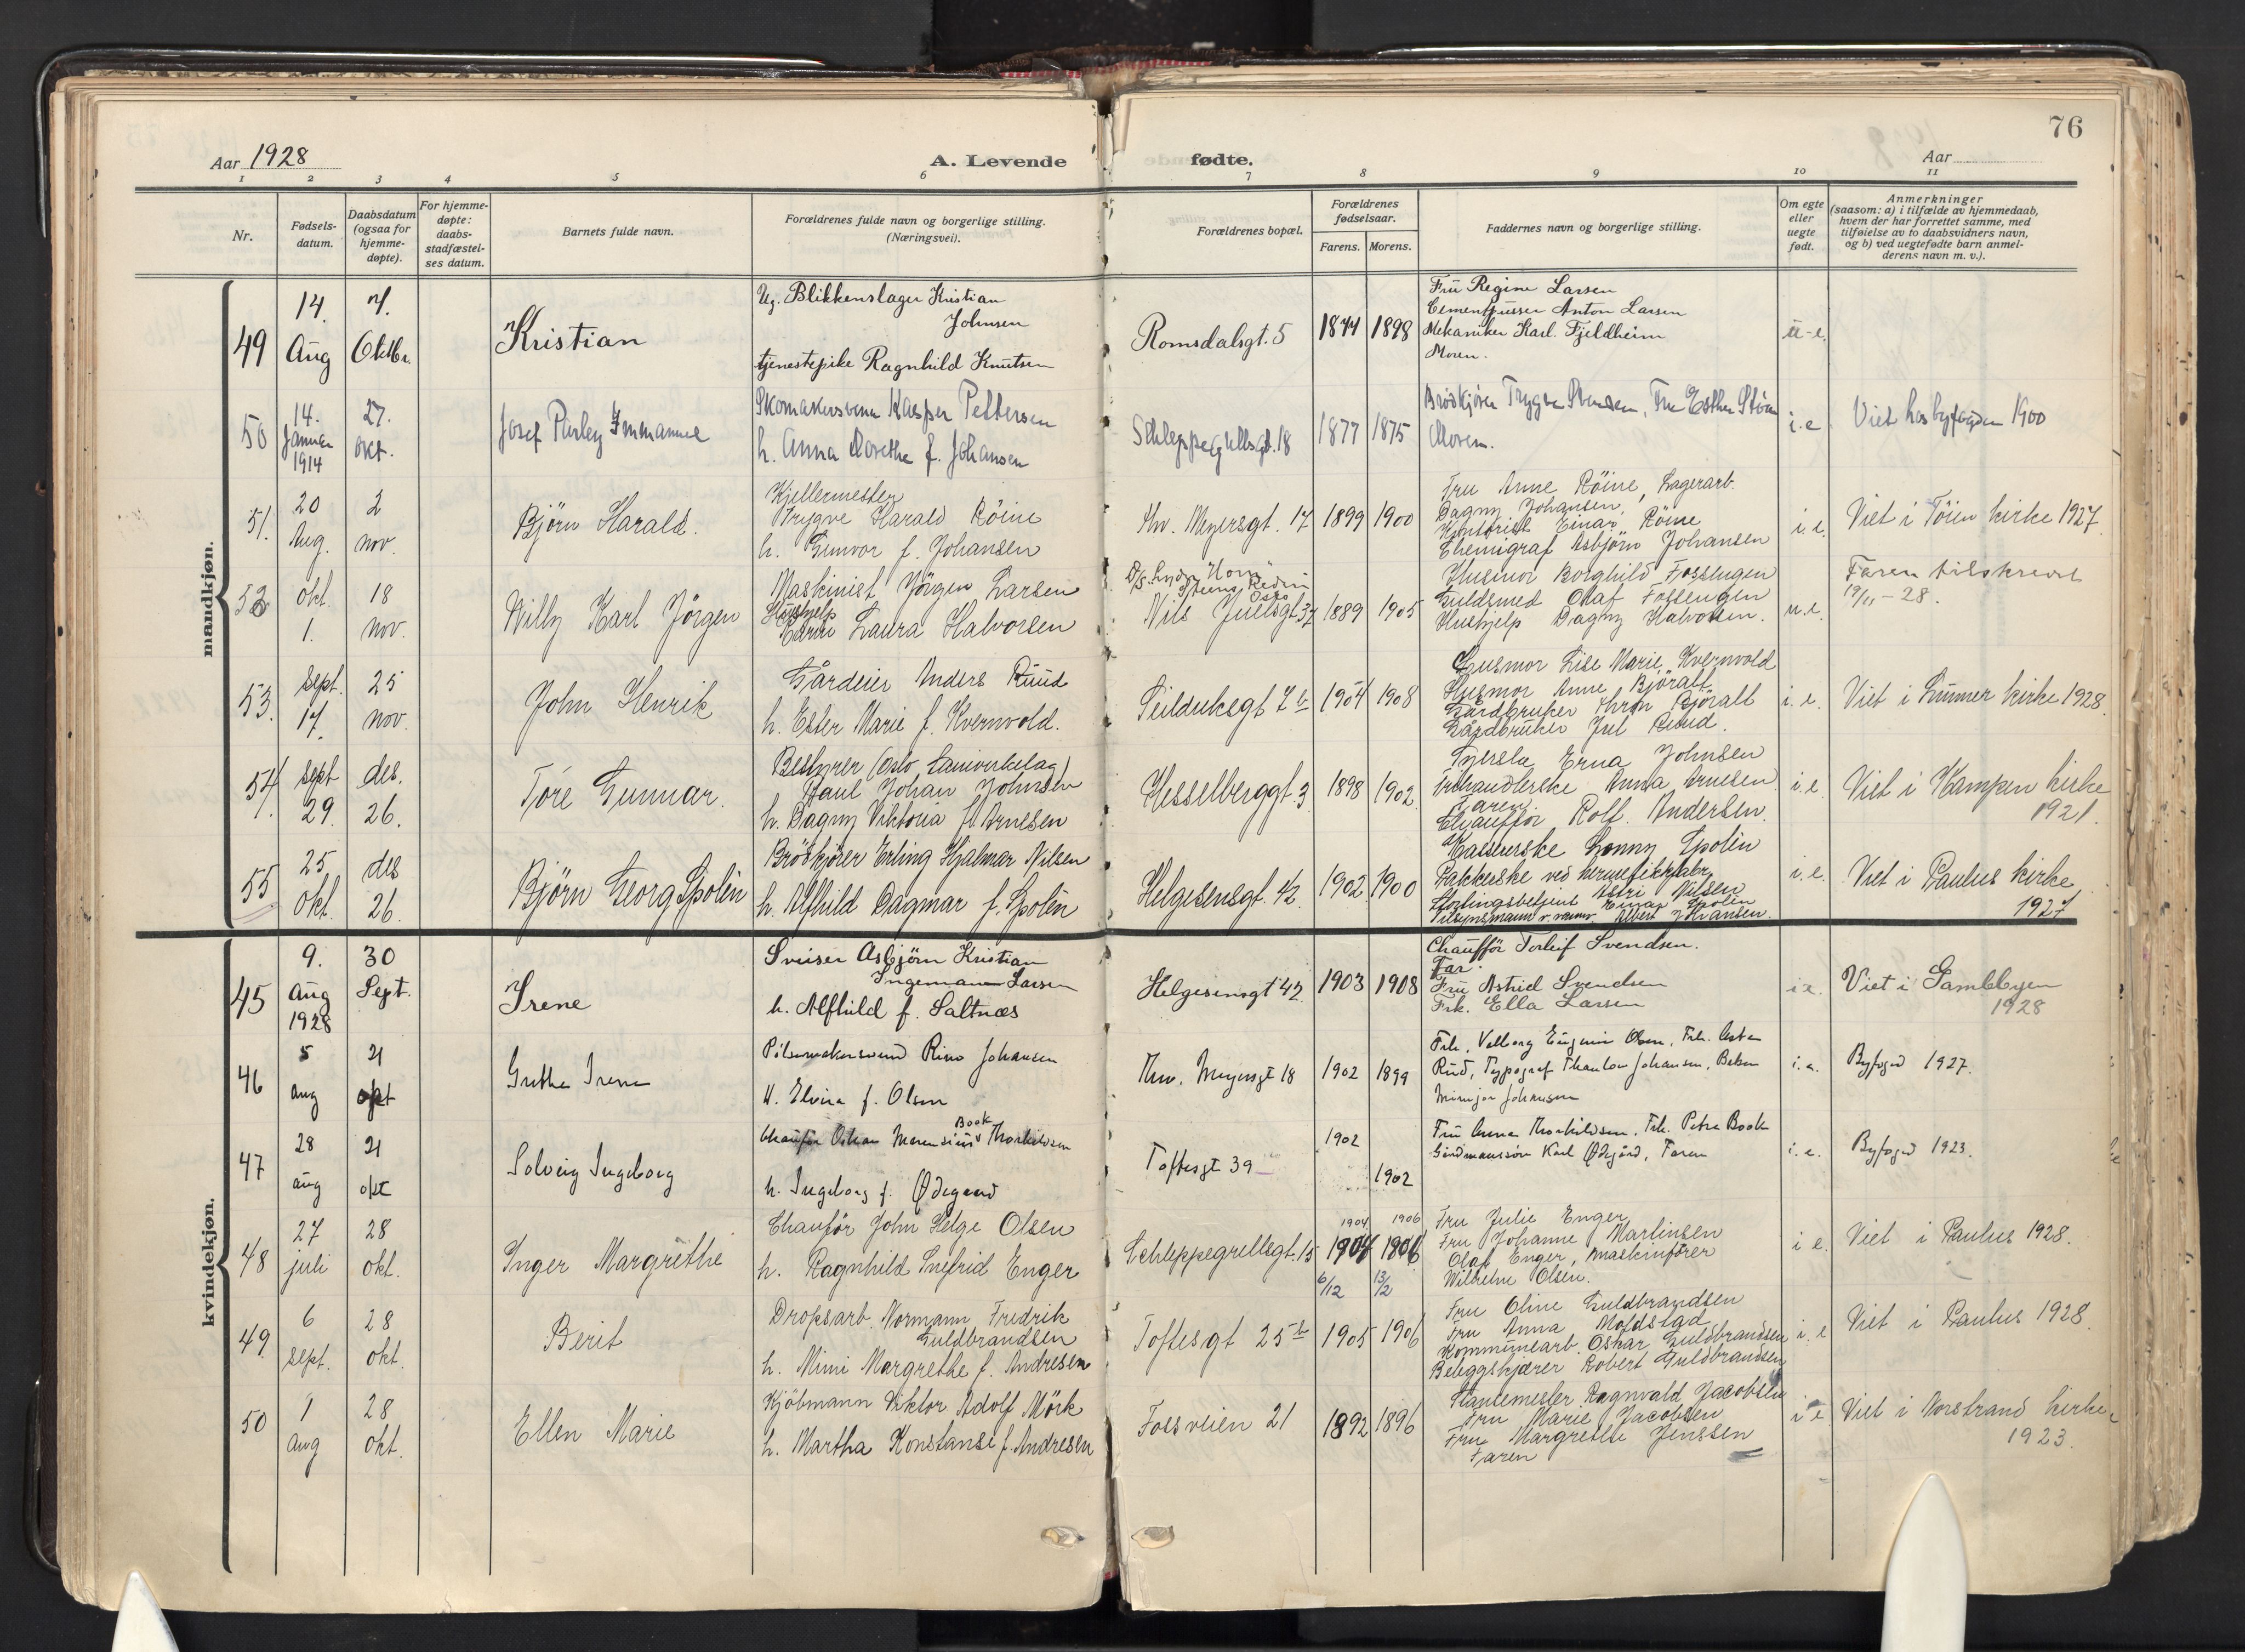 76
Aar 1928
A. Levende fødte.
Aar
1 2 3 4 5 6 7 8 9 10 11
Nr.
Fødsels-
datum.
Daabsdatum
(ogsaa for
hjemme-
døpte).
For hjemme-
døpte:
daabs-
stadfæstel-
ses datum.
Barnets fulde navn.
Forældrenes fulde navn og borgerlige stilling.
(Næringsvei).
Forældrenes bopæl.
Forældrenes
fødselsaar.
Farens. Morens.
Faddernes navn og borgerlige stilling.
Om egte
eller
uegte
født.
Anmerkninger
(saasom: a) i tilfælde av hjemmedaab,
hvem der har forrettet samme, med
tilføielse av to daabsvidners navn,
og b) ved uegtefødte barn anmel-
derens navn m. v.).
mandkjøn.
49
14.
Aug
7.
Oktbr.
Kristian
Ug. Blikkenslager Kristian
Johnsen
tjenestepike Ragnhild Knutsen
Romsdalsgt. 5
1874 1898
Fru Regine Larsen
Cementpusser Anton Larsen
Mekaniker Karl Fjeldheim
Moren.
u-e.
50
14.
Januar
1914
27.
okt.
Josef Parley Immanuel
Skomakersvenn Kasper Pettersen
h. Anna Dorethe f. Johansen
Schleppegrellsgt. 18
1877 1875
Brødkjører Trygve Svendsen, Fru Esther
Moren.
i.e
Viet hos byfogden 1900
51.
20
Aug.
2
nov.
Bjørn Harald.
Kjellermester
Trygve Harald Röine
h. Gunvor f. Johansen
Thv. Meyersgt. 17
1899 1900
Fru Anne Röine, Lagerarb.
Dagny Johansen,
Kontorist Einar Röine
Chemigraf Asbjörn Johansen
i. e.
Viet i Töien kirke 1927
52
okt.
1.
18
nov.
Willy Karl Jörgen
Maskinist Jörgen Larsen
Hushjelp
Karin Laura Halvorsen
Oslo
Nils Juelsgt. 37
1889 1905
Husmor Borghild Fossengen
Guldsmed Olaf Fossengen
Hushjelp Dagny Halvorsen.
u.e.
Faren tilskrevet
19/11-28.
53.
sept.
17.
25
nov.
John Henrik
Gårdeier Anders Ruud
h. Ester Marie f. Kvernvold.
Seilduksgt 7 b
1904 1908
Husmor Lise Marie Kvernvold
Husmor Anne Björalt
Gårdbruker Thron Björalt
Gårdbruker Jul Ruud.
i. e.
Viet i Lunner kirke 1928.
54.
sept
29.
des.
26.
Tore Gunnar.
Bestyrer (Oslo Samvirkelag)
Paul Johan Johnsen
h. Dagny Viktoria f. Arnesen
Hesselberggt. 3
1898 1902
Erna Johnsen
Anna Arnesen
Faren.
Chauffør Rolf Andersen.
i.e.
Viet i Kampen kirke
1921.
55
25
okt.
des
26.
Björn Georg Spolén
Brödkjører Erling Hjalmar Nilsen
h. Alfhild Dagmar f. Spolén
Helgesensgt. 42.
1902 1900
Kasserske Lonny Spolén
Pakkerske ved hermetikfabr.
Astri Nilsen
Stortingsbetjent Einar Spolén
Albert Johansen.
i.e.
Viet i Paulus kirke
1927
kvindekjøn.
45
9.
Aug
1928
30
Sept.
Irene
Sveiser Asbjörn Kristian
Ingemann Larsen
h. Alfhild f. Saltnæs
Helgesensgt 42
1903 1908
Chauffør Torleif Svendsen.
Far.
Fru Astrid Svendsen
Frk. Ella Larsen
i e.
Viet i Gamlebyen
1928
46
5
aug
21
okt
Grethe Irene
Pølsemakersvend Rino Johansen
h. Elvira f. Olsen
Thv. Meyersgt 18
1902 1899
Frk. Valborg Eugenie Olsen, Frk. Asta
Rud, Typograf Thanlow Johansen, Baker
Johansen
i.e.
Byfogd 1927.
47
28
aug
21
okt
Solveig Ingeborg
Book
Chauför Oskar Marensius Thorkildsen
h. Ingeborg f. Ødegaard
Toftesgt 39
1902
1902
Fru Anna Thorkildsen, Frk. Petra Book
Karl Ødegård, Faren
i. e.
Byfogd 1923.
48
27
juli
28
okt.
Inger Margrethe
Chauför John Helge Olsen
h. Ragnhild Snefrid Enger
Schleppegrellsgt. 15
1904 1906
1904 1906
6/12 13/2
Fru Julie Enger
Fru Johanne Martinsen
Olaf Enger, maskinfører
Wilhelm Olsen.
i e.
Viet i Paulus 1928.
49.
6
sept.
28
okt.
Berit
Dropsarb. Normann Fredrik
Guldbrandsen
h. Mimi Margrethe f. Andresen
Toftesgt 25 b
1905 1906
Fru Oline Guldbrandsen
Fru Anna Moldstad
Kommunearb. Oskar Guldbrandsen
Beleggskjører Robert Guldbrandsen
i. e
Viet i Paulus 1928.
50
1
aug
28
okt.
Ellen Marie
Kjöbmann Viktor Adolf Mörk
h. Martha Konstanse f. Andresen
Fossveien 21
1892 1896
Ragnvald Jacobsen
Fru Marie Jacobsen
Fru Margrethe Jenssen
Faren
i e
Viet i Norstrand kirke
1923.